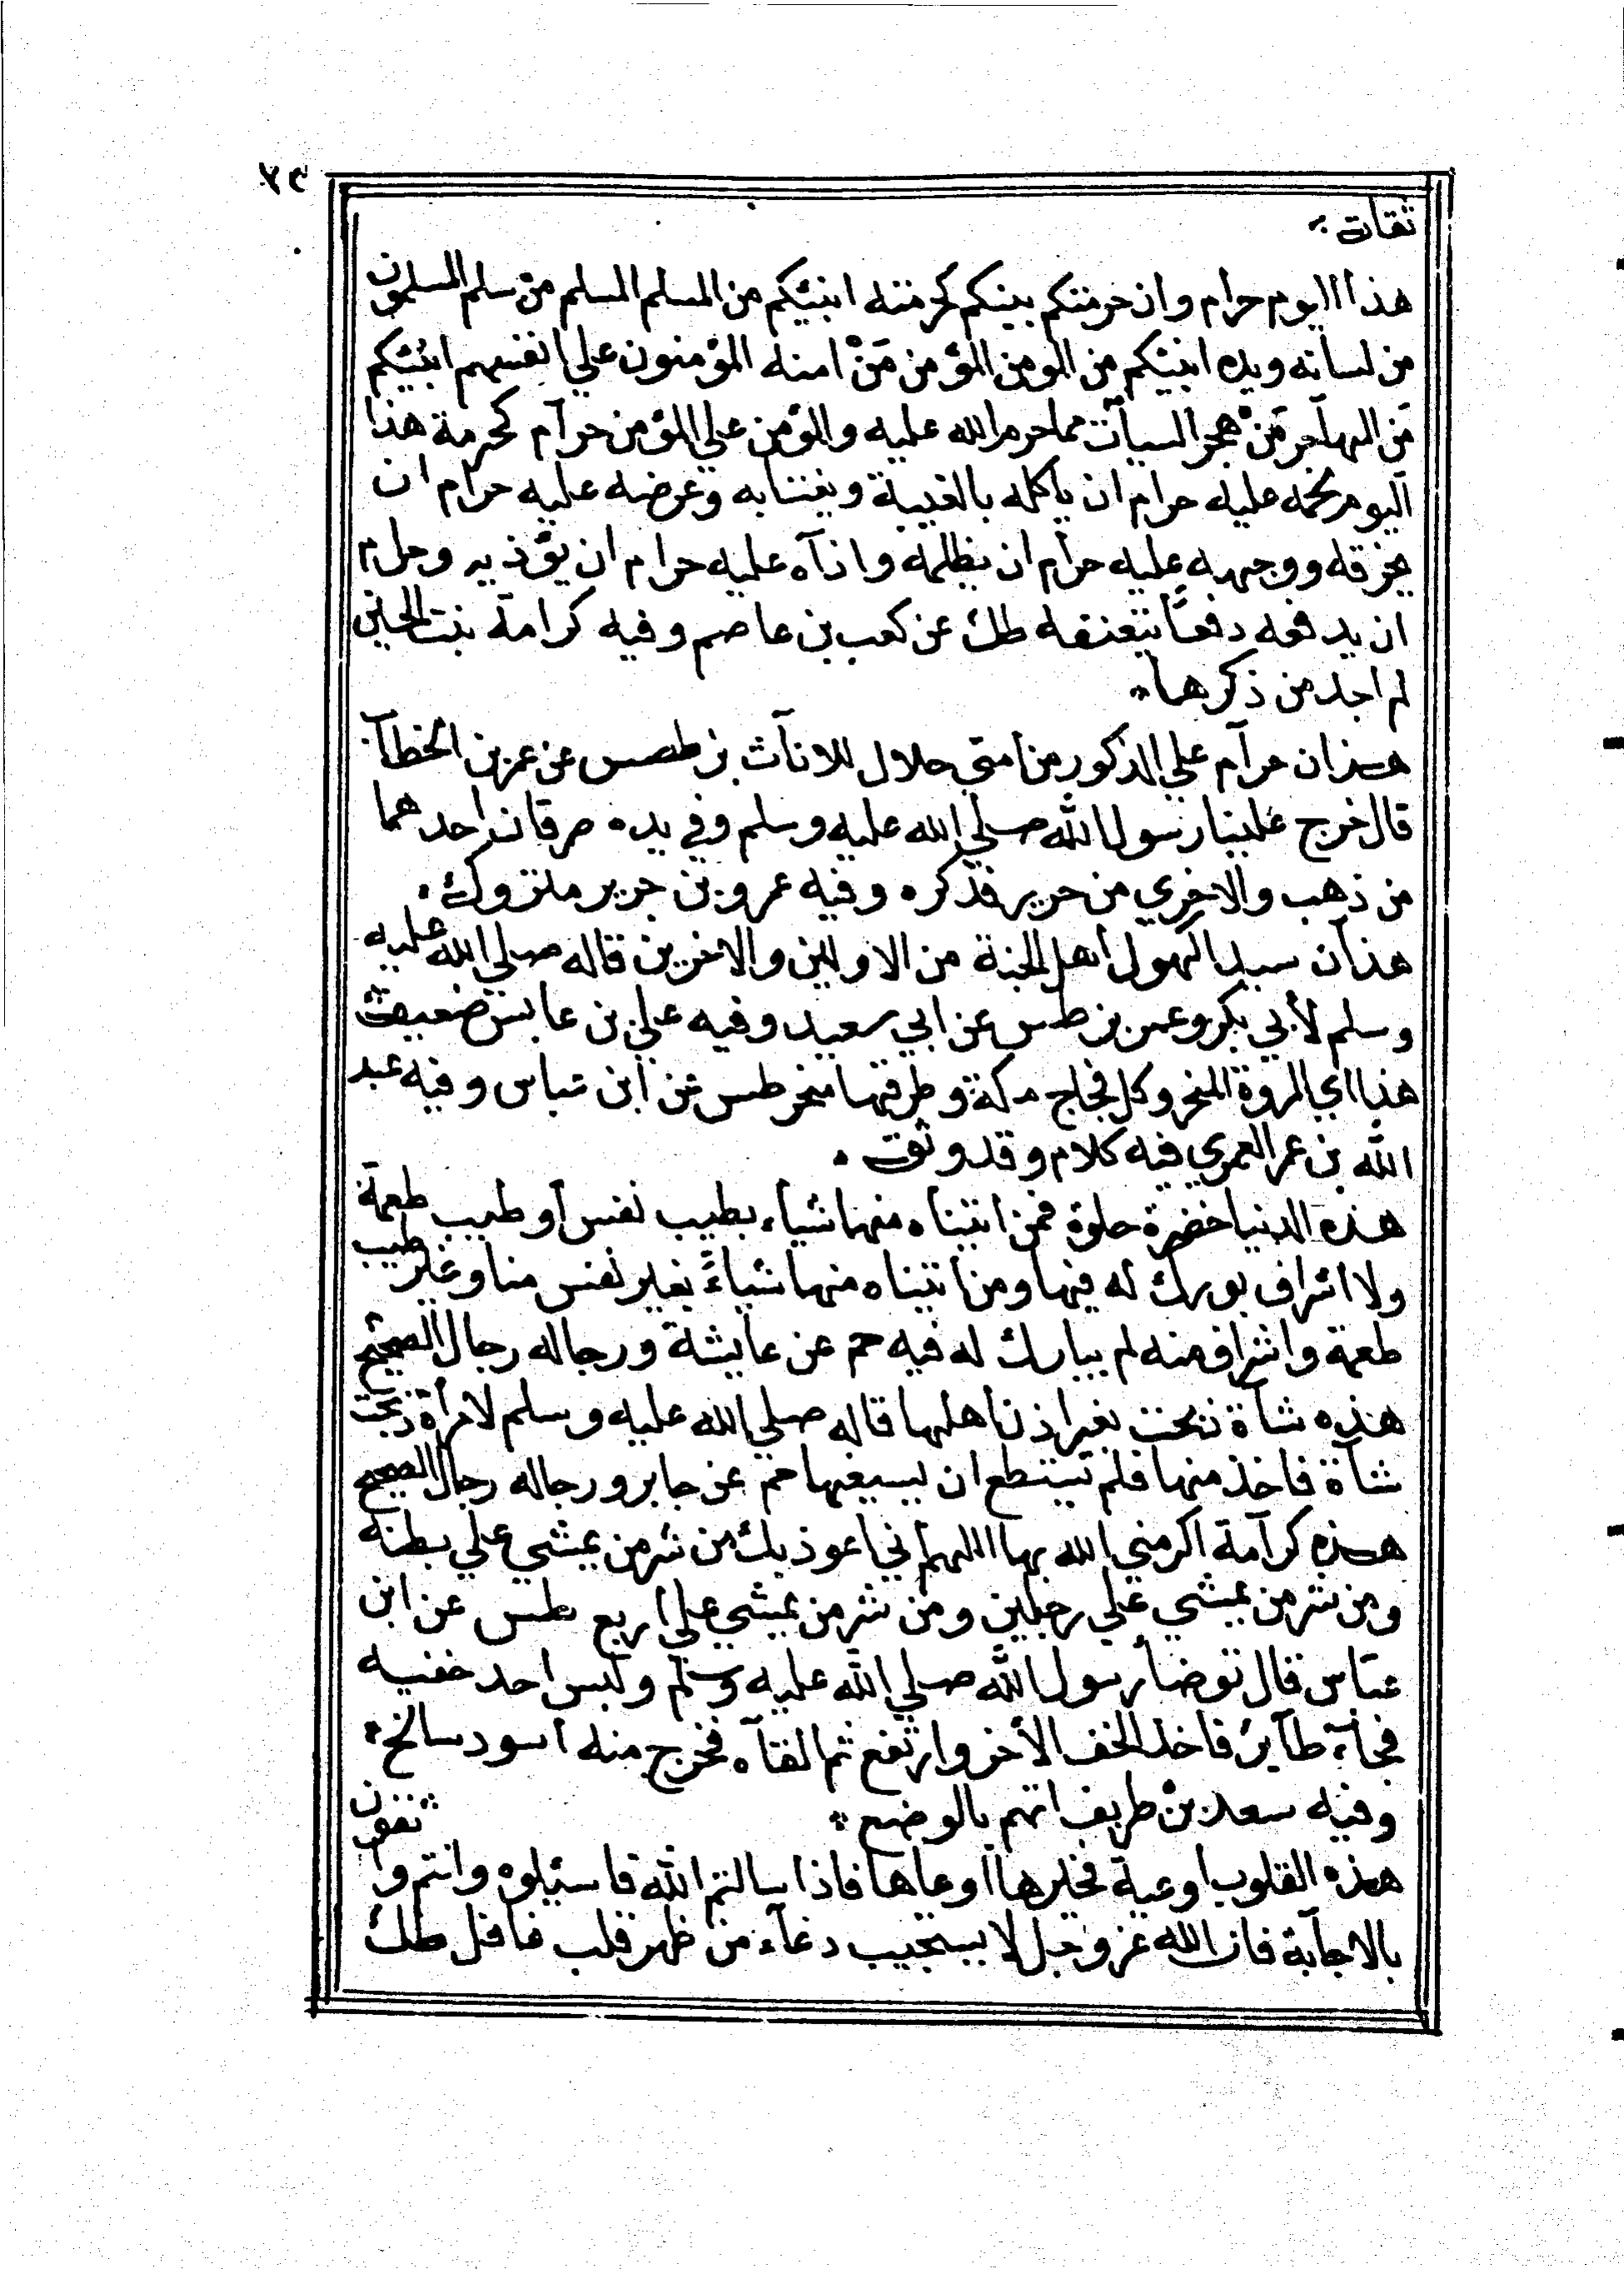 ثقات
هذا اليوم حرام وان حرمتكم بينكم كحرمته انبئكم من المسلم المسلم من سلم المسلمون
من لسانه ويده انبئكم من المومن المؤمن مَنْ امنه المؤمنون علي انفسهم انبئكم
مَن المهاجر مَنْ هجر السيأت مما حرم الله عليه والمؤمن علي المؤمن حرآم كحرمة هذا
اليوم لحمه عليه حرام ان ياكله بالغيبة ويغتابه وعرضه عليه حرام ان
يخرقه ووجهه عليه حرام ان يظلمه واذآه عليه حرام ان يؤذيه وحرام
ان يدفعه دفعًا يتعنفه طك عن كعب بن عاصم وفيه كرامة بنت الحسين
لم اجد من ذكرها
هذان حرآم علي الذكور من أمتي حلال للاناث بز طصس عن عمر بن الخطاب
قال خرج علينا رسول الله صلي الله عليه وسلم وفي يده صرقان احدهما
من ذهب والاخري من حرير فذكره وفيه عمرو بن جرير متروك
هذان سيدا كهول أهل الجنة من الاولين والاخرين قاله صلي الله عليه
وسلم لأبي بكر وعمر بز طس عن ابي سعيد وفيه علي بن عابس ضعيف
هذا اي المروة المنحر وكل فجاج مكة وطرقها منحر طس عن ابن عباس وفيه عبد
الله بن عمر العمري فيه كلام وقد وثق
هذه الدنيا خضرة حلوة فمن اتيناه منها شيأ بطيب نفس أو طيب طعمة
ولا اشراف بورك له فيها ومن اتيناه منها شيأً بغير نفس منا وغير طيب
طعمة واشراف منه لم يبارك له فيه حم عن عايشة ورجاله رجال الصحيح
هذه شأة ذبحت بغير اذن أهلها قاله صلي الله عليه وسلم لامرأة ذبحت
شأة فاخذ منها فلم يستطع ان يسيغها حم عن جابر ورجاله رجال الصحيح
هذه كرآمة اكرمني الله بها اللهم اني اعوذ بك من شر من يمشي علي بطنه
ومن شر من يمشي علي رجلين ومن شر من يمشي علي اربع طس عن ابن
عبّاس قال توضأ رسول الله صلي الله عليه وسلم ولبس احد خفيه
فجآء طآير فاخذ الخف الأخر وارتفع ثم القآه فخرج منه أسود سالخ
وفيه سعد بن طريف اتهم بالوضع
هذه القلوب اوعية فخيرها اوعاها فاذا سالتم الله فاسئلوه وانتم وا ثقون
بالاجآبة فان الله عز وجل لا يستجيب دعآء من ظهر قلب غافل طك